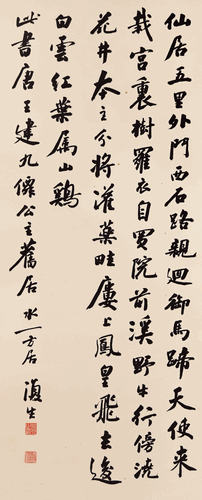 仙居五里外門西石路親迴御馬蹄天使來
栽宮裏樹羅衣自買院前溪野牛行傍澆
花井本主分將灌藥畦廔上鳳皇飛去後
白雲紅葉属山鷄
此書唐王建九僊公主舊居 水一方居 復生